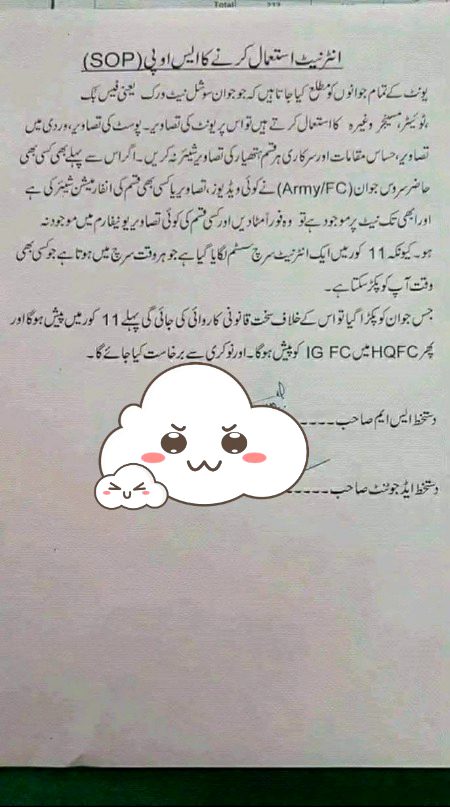 Total
انٹرنیٹ استعمال کرنے کا ایس او پی (SOP)
یونٹ کے تمام جوانوں کو مطلع کیا جاتا ہیں کہ جو جوان سوشل نیٹ ورک یعنی فیس بک
،ٹوئیٹر، مسینجر وغیرہ کا استعمال کرتے ہیں تو اس پر یونٹ کی تصاویر۔ پوسٹ کی تصاویر، وردی میں
تصاویر، حساس مقامات اور سرکاری ہر قسم ہتھیار کی تصاویر شیئر نہ کریں۔ اگر اس سے پہلے بھی کسی بھی
حاضر سروس جوان (Army/FC) نے کوئی ویڈیوز، تصاویر یا کسی بھی قسم کی انفارمیشن شیئر کی ہے
اور ابھی تک نیٹ پر موجود ہے تو وہ فوراً مٹا دیں اور کسی قسم کی کوئی تصاویر یونیفارم میں موجود نہ
ہو۔ کیونکہ 11 کور میں ایک انٹرنیٹ سرچ سسٹم لگایا گیا ہے جو ہر وقت سرچ میں ہوتا ہے جو کسی بھی
وقت آپ کو پکڑ سکتا ہے۔
جس جوان کو پکڑا گیا تو اس کے خلاف سخت قانونی کاروائی کی جائی گی پہلے 11 کور میں پیش ہوگا اور
پھر HQFC میں IG FC کو پیش ہوگا۔ اور نوکری سے برخاست کیا جائے گا۔
دستخط ایس ایم صاحب ۔۔۔۔۔
دستخط ایڈجوٹنٹ صاحب ۔۔۔۔۔